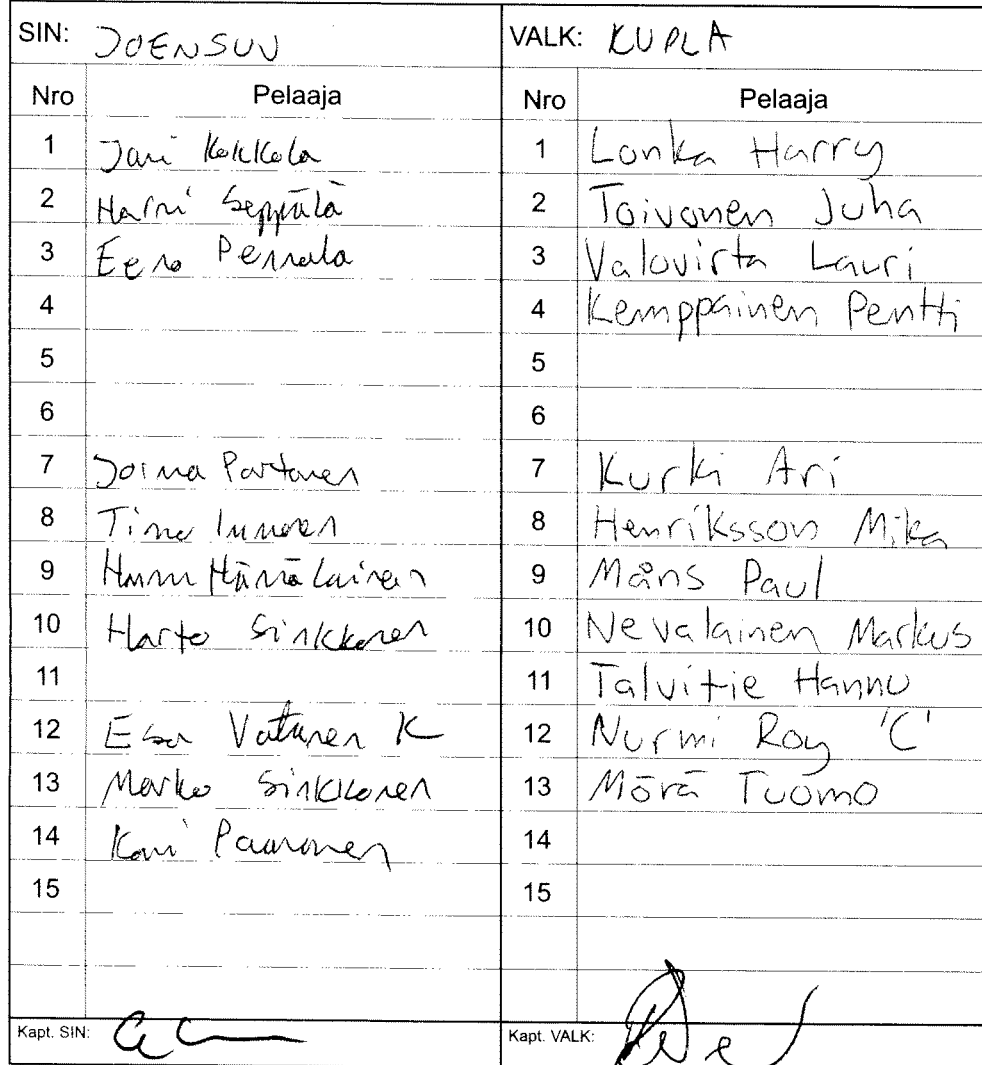 SIN: JOENSUU
Nro Pelaaja
1 Jari Kokkola
2 Harri Seppälä
3 Eero Perrala
4
5
6
7 Jorma Partanen
8 Timo Immonen
9 Hannu Hämäläinen
10 Harto Sinkkonen
11
12 Esa Vatanen K
13 Marko Sinkkonen
14 Kari Paunonen
15
Kapt. SIN:
VALK: KUPLA
Nro Pelaaja
1 Lonka Harry
2 Toivonen Juha
3 Valovirta Lauri
4 Kemppainen Pentti
5
6
7 Kurki Ari
8 Henriksson Mika
9 Måns Paul
10 Nevalainen Markus
11 Talvitie Hannu
12 Nurmi Roy 'C'
13 Mörä Tuomo
14
15
Kapt. VALK: